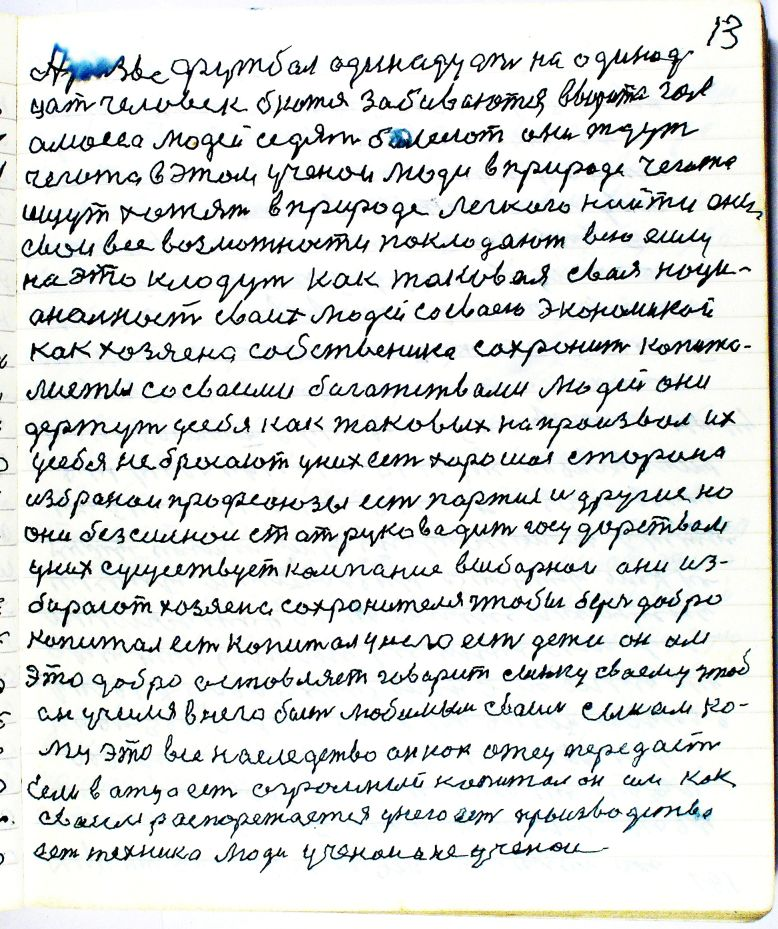 13
футбол одинадцат на одинод
цат человек бютя забиваются вворота гол
а масса людей седят болеют они ждут
чегота в этом ученои люди в природе чегота
ищут хотят в природе легкого найти они
свои все возможности покладают всю силу
на это кладут как таковая свая нацы-
аналност сваих людей со сваею экономикой
как хозяена собственика сохронит копита-
листы со сваими багатствами людей они
держут усебя как таковых напроизвол их
усебя не бросают уних ест хорошая сторона
избраной профсоюзы ест партия и другие но
они безсилнои стат руковадит госу дарствам
уних существует кампание выборнои они из-
бирают хозяена сохронителя чтобы берёг добро
копитал ест копитал унего ест дети он им
это добро оставляет говорит сынку сваему чтоб
он учился внего быт любимым сваим сынам ко-
му это все наследство он как отец передаст
Если в отца ест огромный копитал он им как
сваим распоряжается унего ест производство
ест техника люди ученои а не ученои